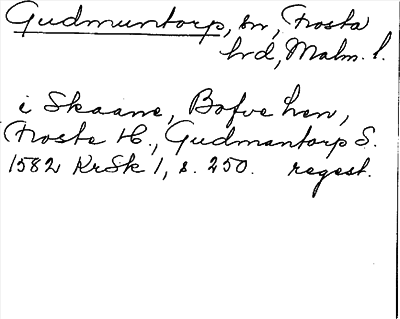 Gudmuntorp, sn, Frosta
hrd, Malm. l.
i Skaane, Bosue Len,
Froste H., Gudmantorp S.
1582 KrSk 1, s. 250. regest.